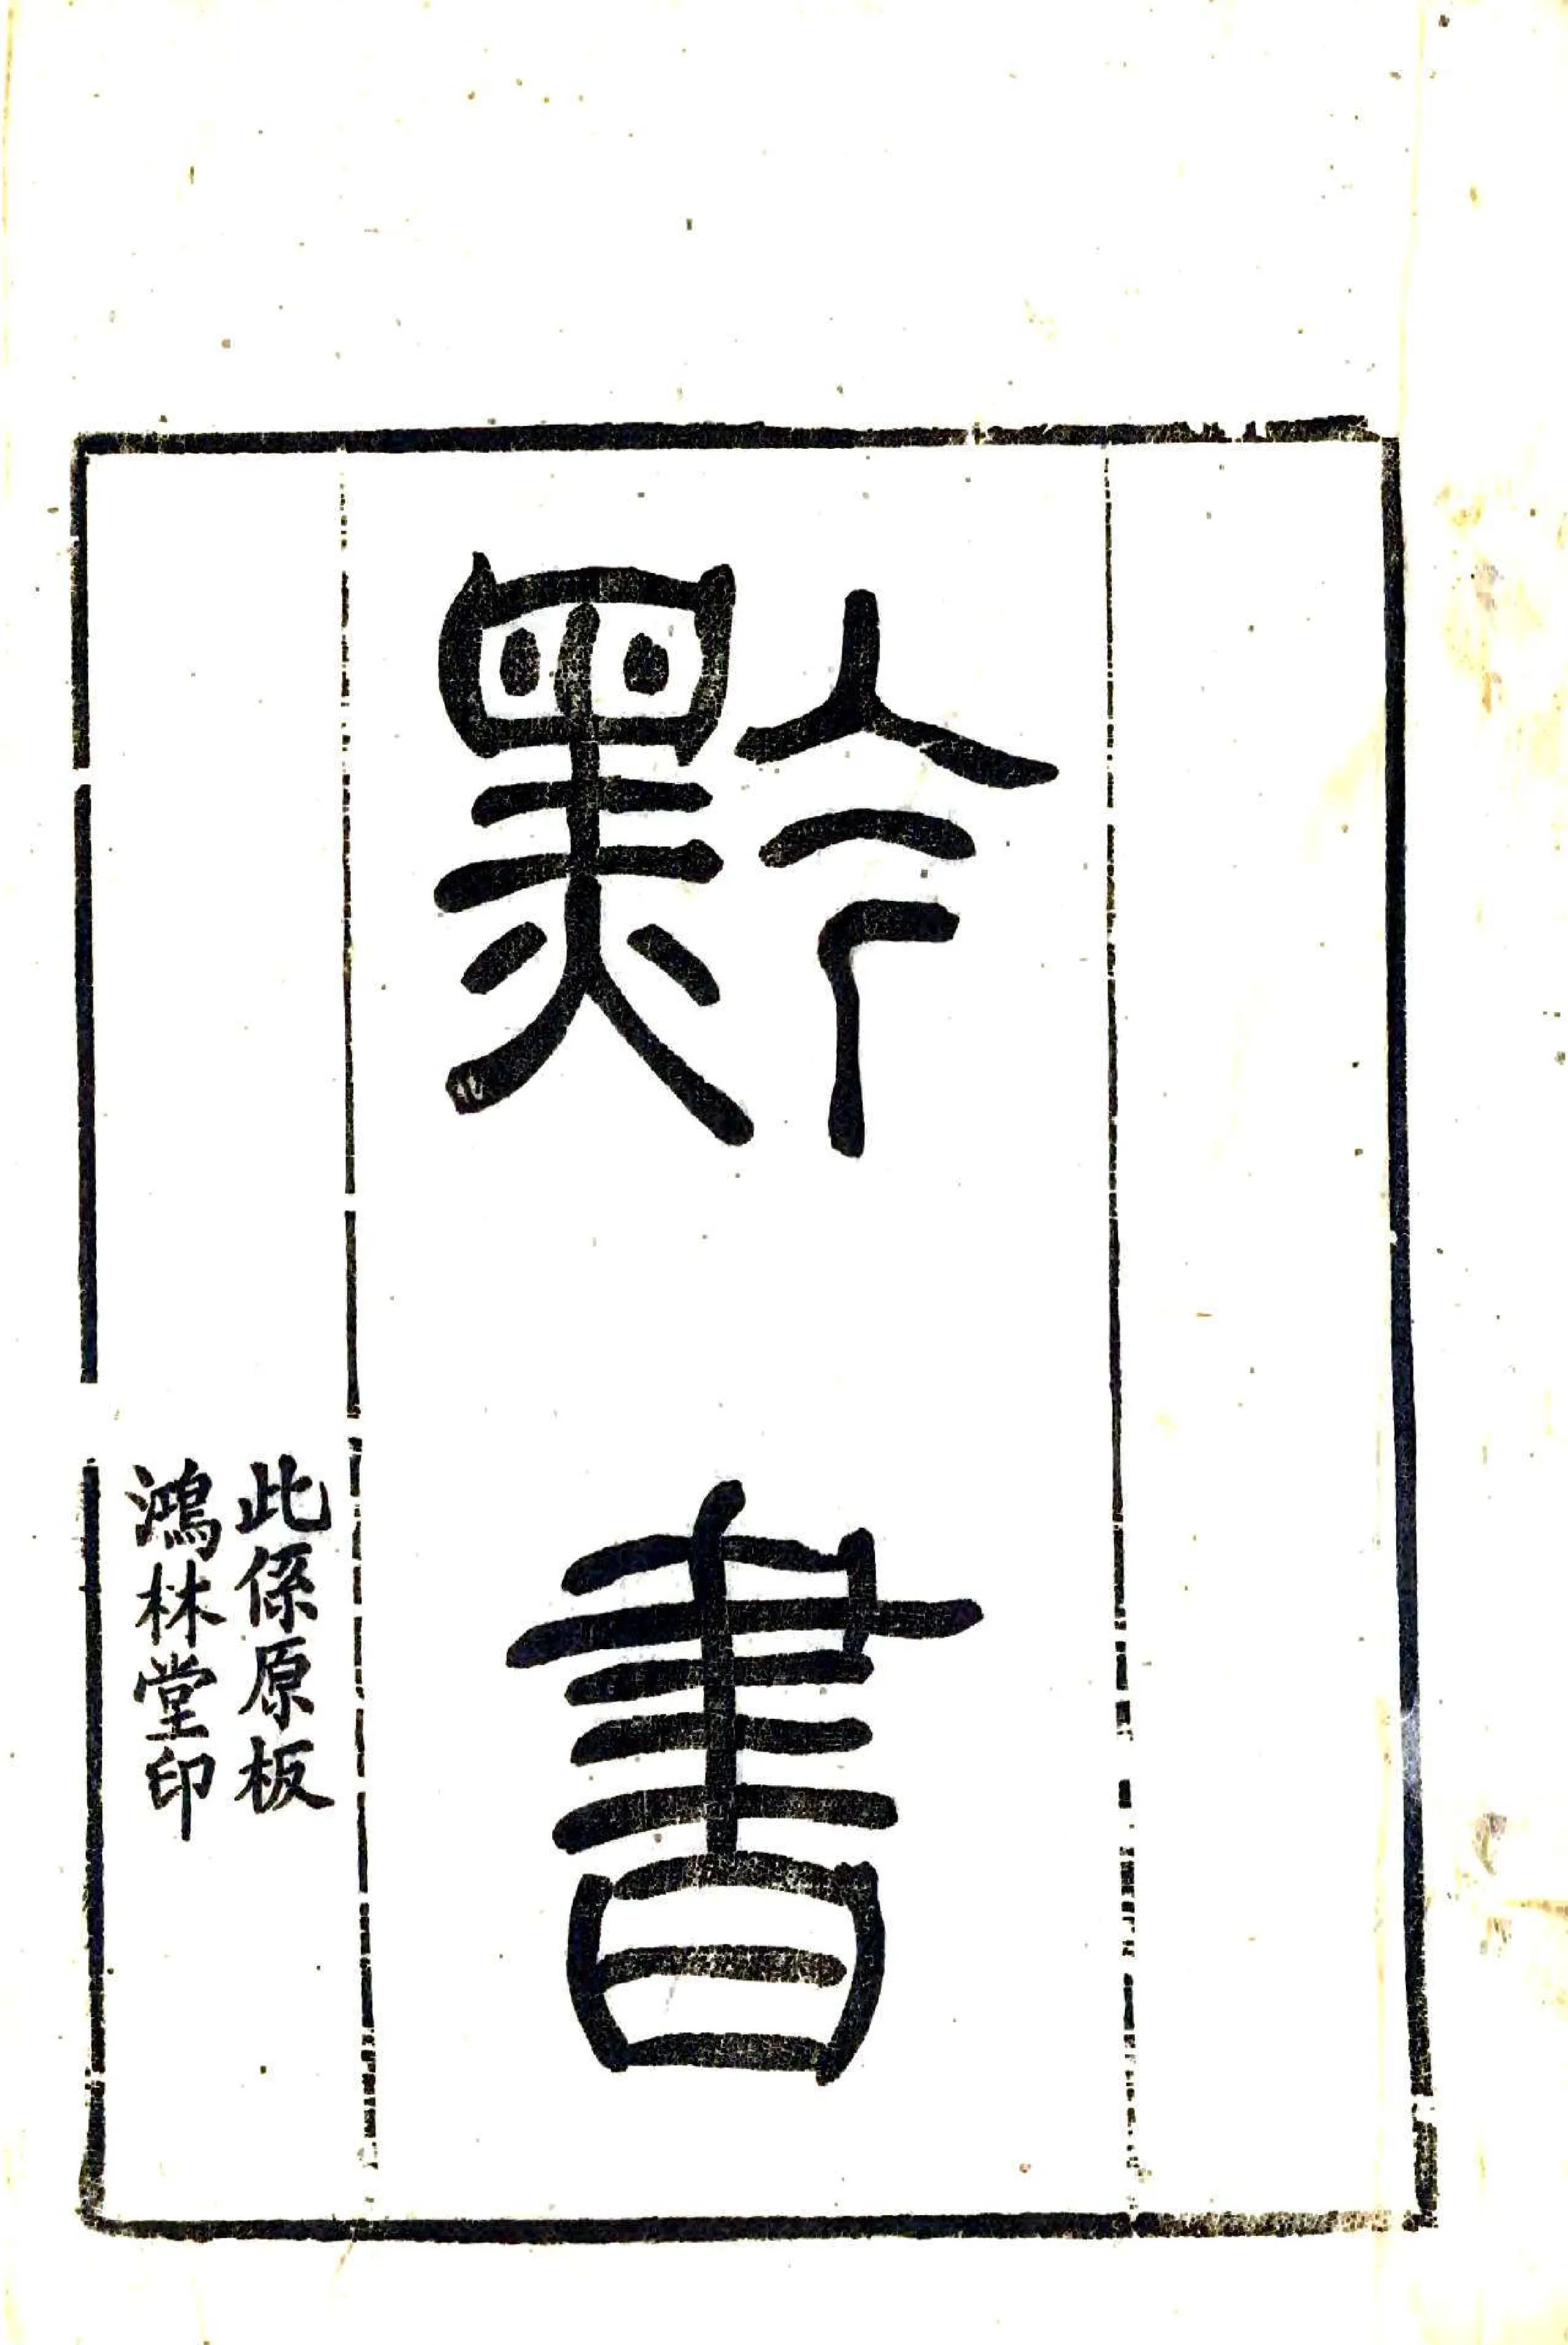 黔書
此係原板
鴻林堂印